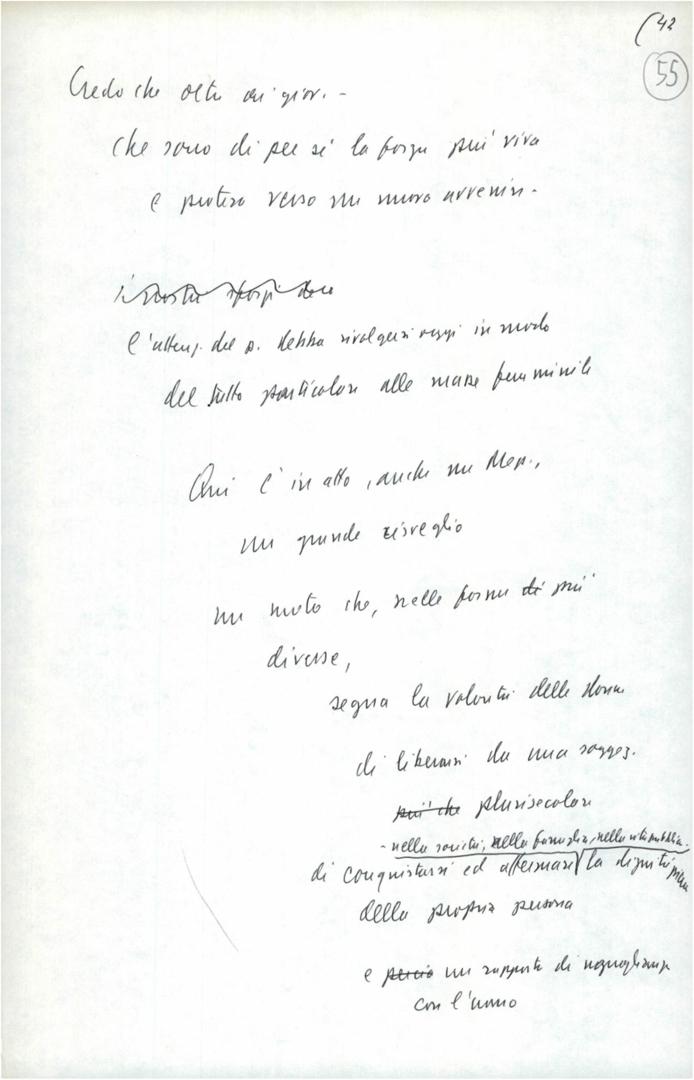 (42
55
Credo che oltre ai giov. -
che sono di per sé la forza più viva
e protesa verso un nuovo avvenire -
i nostri sforzi deve
l'attenz. del p. debba rivolgersi oggi in modo
del tutto particolare alle masse femminili
Qui c'è in atto, anche nel Mez.,
un grande risveglio
un moto che, nelle forme di più
diverse,
segna la volontà delle donne
di liberarsi da una sogggez.
più che plurisecolare
- nella società, nella famiglia, nella vita pubblica -
di conquistarsi ed affermare la dignità piena
della propria persona
e perciò un rapporto di uguaglianza
con l'uomo